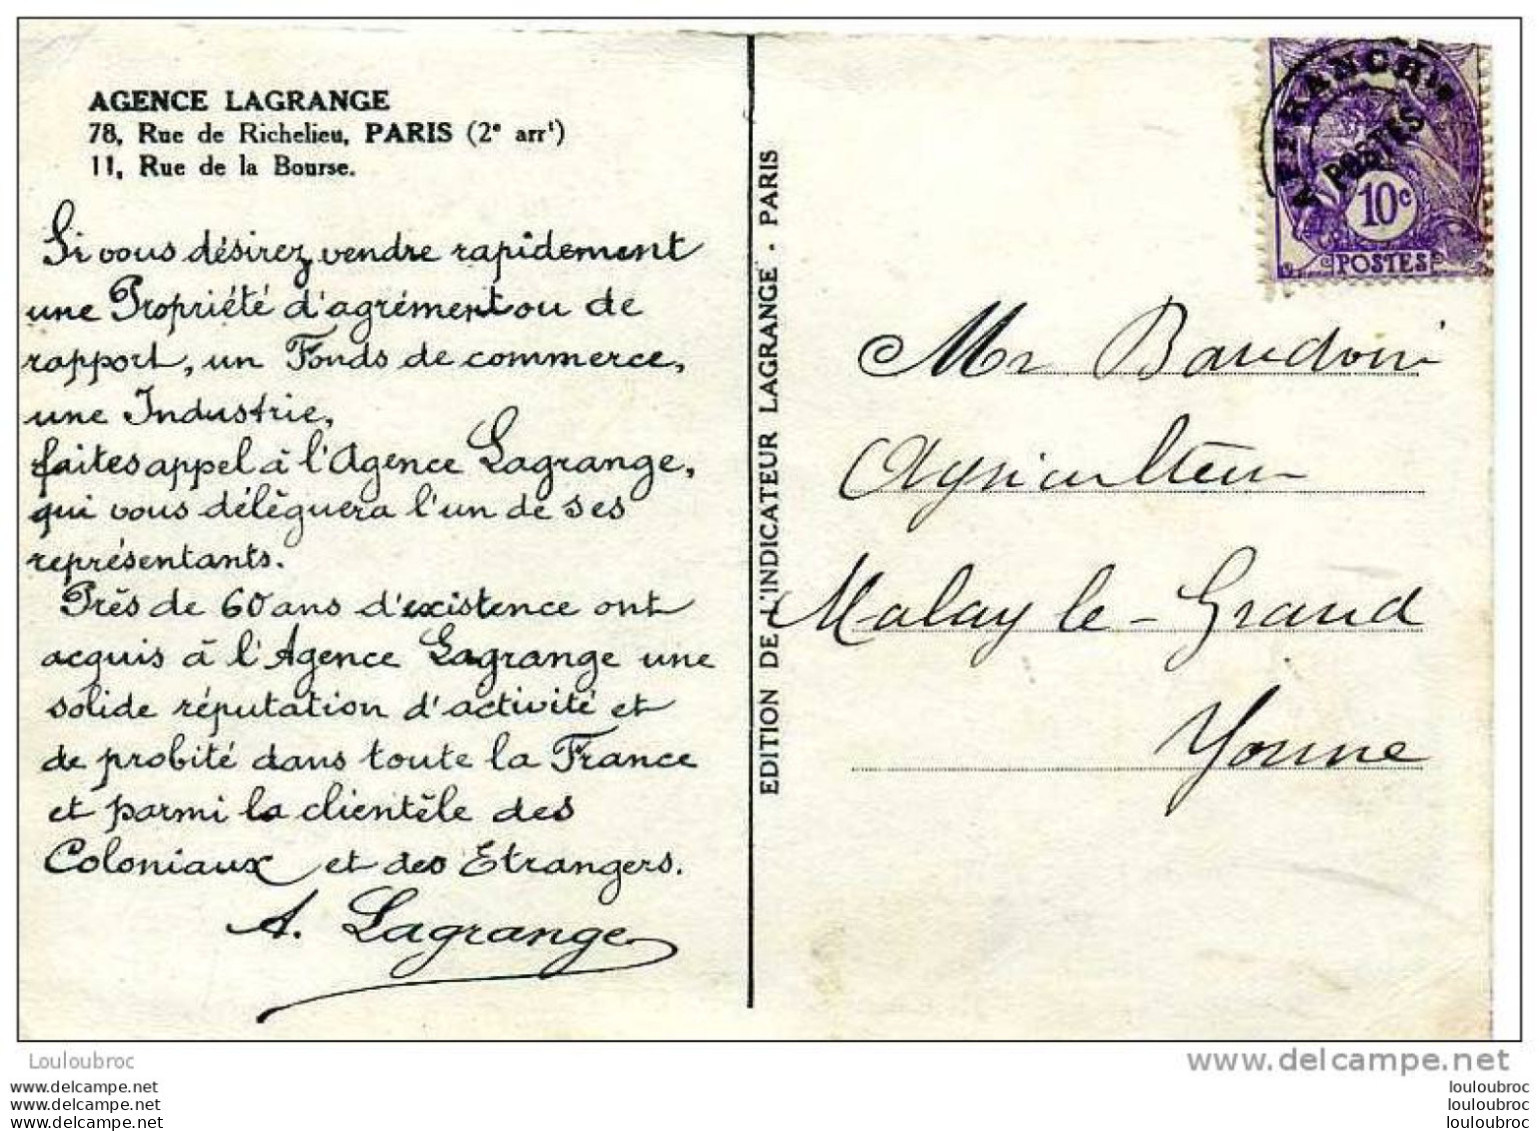 AGENCE LAGRANGE
78, Rue de Richelieu, PARIS (2e arrt)
11, Rue de la Bourse.
Si vous désirez vendre rapidement
une Propriété d'agrément ou de
rapport, un Fonds de commerce,
une Industrie,
faites appel à l'Agence Lagrange,
qui vous déléguera l'un de ses
représentants.
Près de 60 ans d'existence ont
acquis à l'Agence Lagrange une
solide réputation d'activité et
de probité dans toute la France
et parmi la clientèle des
Coloniaux et des Etrangers.
A. Lagrange
EDITION DE L'INDICATEUR LAGRANGE - PARIS
AFFRANCHts
POSTES
10c
POSTES
Mr Baudoin
Agriculteur
Malay le-Grand
Yonne
Louloubroc
www.delcampe.net
www.delcampe.net
www.delcampe.net
www.delcampe.net
louloubroc
louloubroc
louloubroc